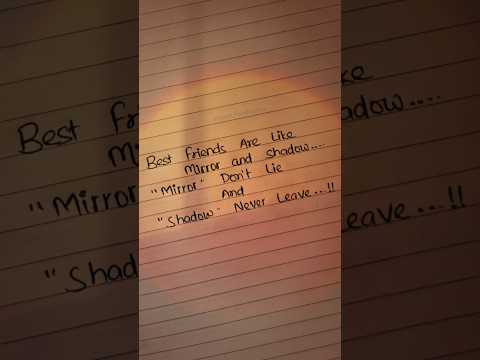 Best Friends Are Like
Mirror and shadow....
"Mirror" Don't Lie
And
"Shadow" Never Leave...!!